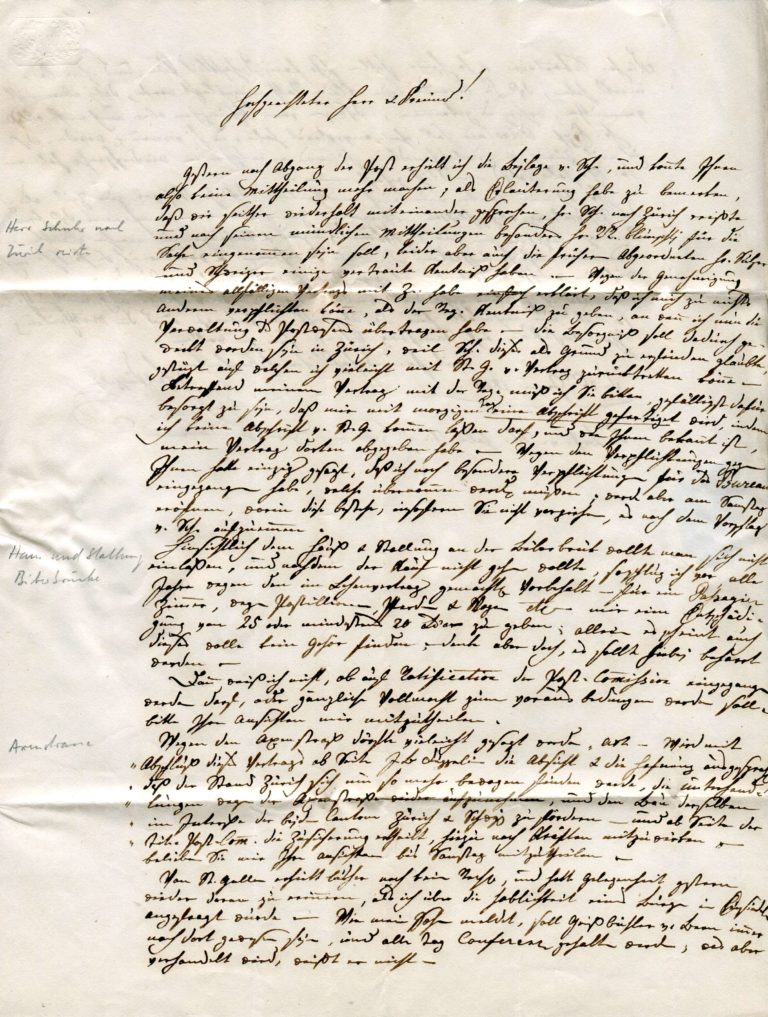 Hochgeachteter Herr & Freund!
Gestern nach Abgang der Post erhielt ich die Beylage v. Sch., und konnte Ihnen
also keine Mittheilung mehr machen; als Erläuterung habe zu bemerken,
daß wir seither wiederholt miteinander gesprochen, Hr. Sch. nach Zürich reiste
und nach seinen mündlichen Mittheilungen besonders Hr. für die
Sache eingenommen seyn soll, leider aber auch die frühern Abgeordneten Hr.
und einige vertraute Kentniß haben — Wegen der Genehmigung
meines allfälligen Vertrags mit Zü. habe einfach erklärt, daß ich mich zu nichts
anderm verpflichten könne, als der Kentniß zu geben, an wen ich nun die
Verwaltung des Postwesens übertragen habe — die Besorgniß soll dadurch ge-
weckt worden seyn in Zürich, weil Sch. dieses als Grund zu erfinden glaubte,
gestützt auf welchen ich vielleicht mit St. G. v. Vertrag zurücktretten könne —
Betreffend meinem Vertrag mit der muß ich Sie bitten, gefälligst dafür
besorgt zu seyn, daß mir mit morgigem eine Abschrift gefertiget wird, indem
ich keine Abschrift v. St. G. kommen laßen darf, und wie Ihnen bekant ist,
mein Vertrag dorten abgegeben habe — Wegen den Verpflichtungen gegen
Ihnen halte einzig gesagt, daß ich noch besondere Verpflichtungen für das Bureau
eingegangen habe, welche übernommen werden müßen; werde aber am Samstag
eröfnen, worin diese bestehe, insofern Sie nicht vorziehen, es nach dem Vorschlag
v. Sch. aufzunemmen.
Hinsichtlich dem Hauß & Stallung an der Biberbrük wollte man sich nicht
einlaßen, und nachdem der Kauf nicht gehen wollte, ich vor alle
Jahre wegen dem im Lehenvertrag gemachten Vorbehalt — für ein Passagier-
Zimmer, wegen Postillionen, Pferden & Wagen etc — mir eine Entschädi-
gung von 25 oder mindestens 20 zu geben; allein es scheint auch
dieses wolle kein Gehör finden; denke aber doch, es sollte hiebey beharrt
werden —
Dann weiß ich nicht, ob auf Ratification der Post-Comission eingegangen
werden darf, oder gänzliche Vollmacht zum voraus bedungen werden soll —
bitte Ihre Ansichten mir mitzutheilen.
Wegen den Axenstraß dürfte vielleicht gesagt werden, Art — Wird mit
" Abschluß dieses Vertrags ab Seite die Absicht & die Hofnung ausgesprochen
" daß der Stand Zürich sich um so mehr bewogen finden werde, die Unterhand-
" lungen wegen der Axenstraße wieder aufzunehmen, und den Bau derselben
" im Interesse der beyden Cantone Zürich & Schwyz zu fördern — und ab Seite der
" Titl. Post-Com. die Zusicherung ertheilt, hiezu nach Kräften mitzuwirken —
belieben Sie mir Ihre Ansichten bis Samstag mitzutheilen —
Von St. Gallen erhielt bisher noch kein, und hatte Gelegenheit gestern
wieder daran zu erinnern, als ich über die Hablichkeit eines Bürgen in Einsiedeln
angefragt wurde — Wie mein Sohn meldet, soll Geißbühler v. Bern immer
noch dort gewesen seyn, und alle Tag Conferenz gehalten werden; was aber
verhandelt wird, weißt er nicht —
Herr Schuler nach
Zürich reiste
Haus und Stallung
Biberbrücke
Axenstrasse